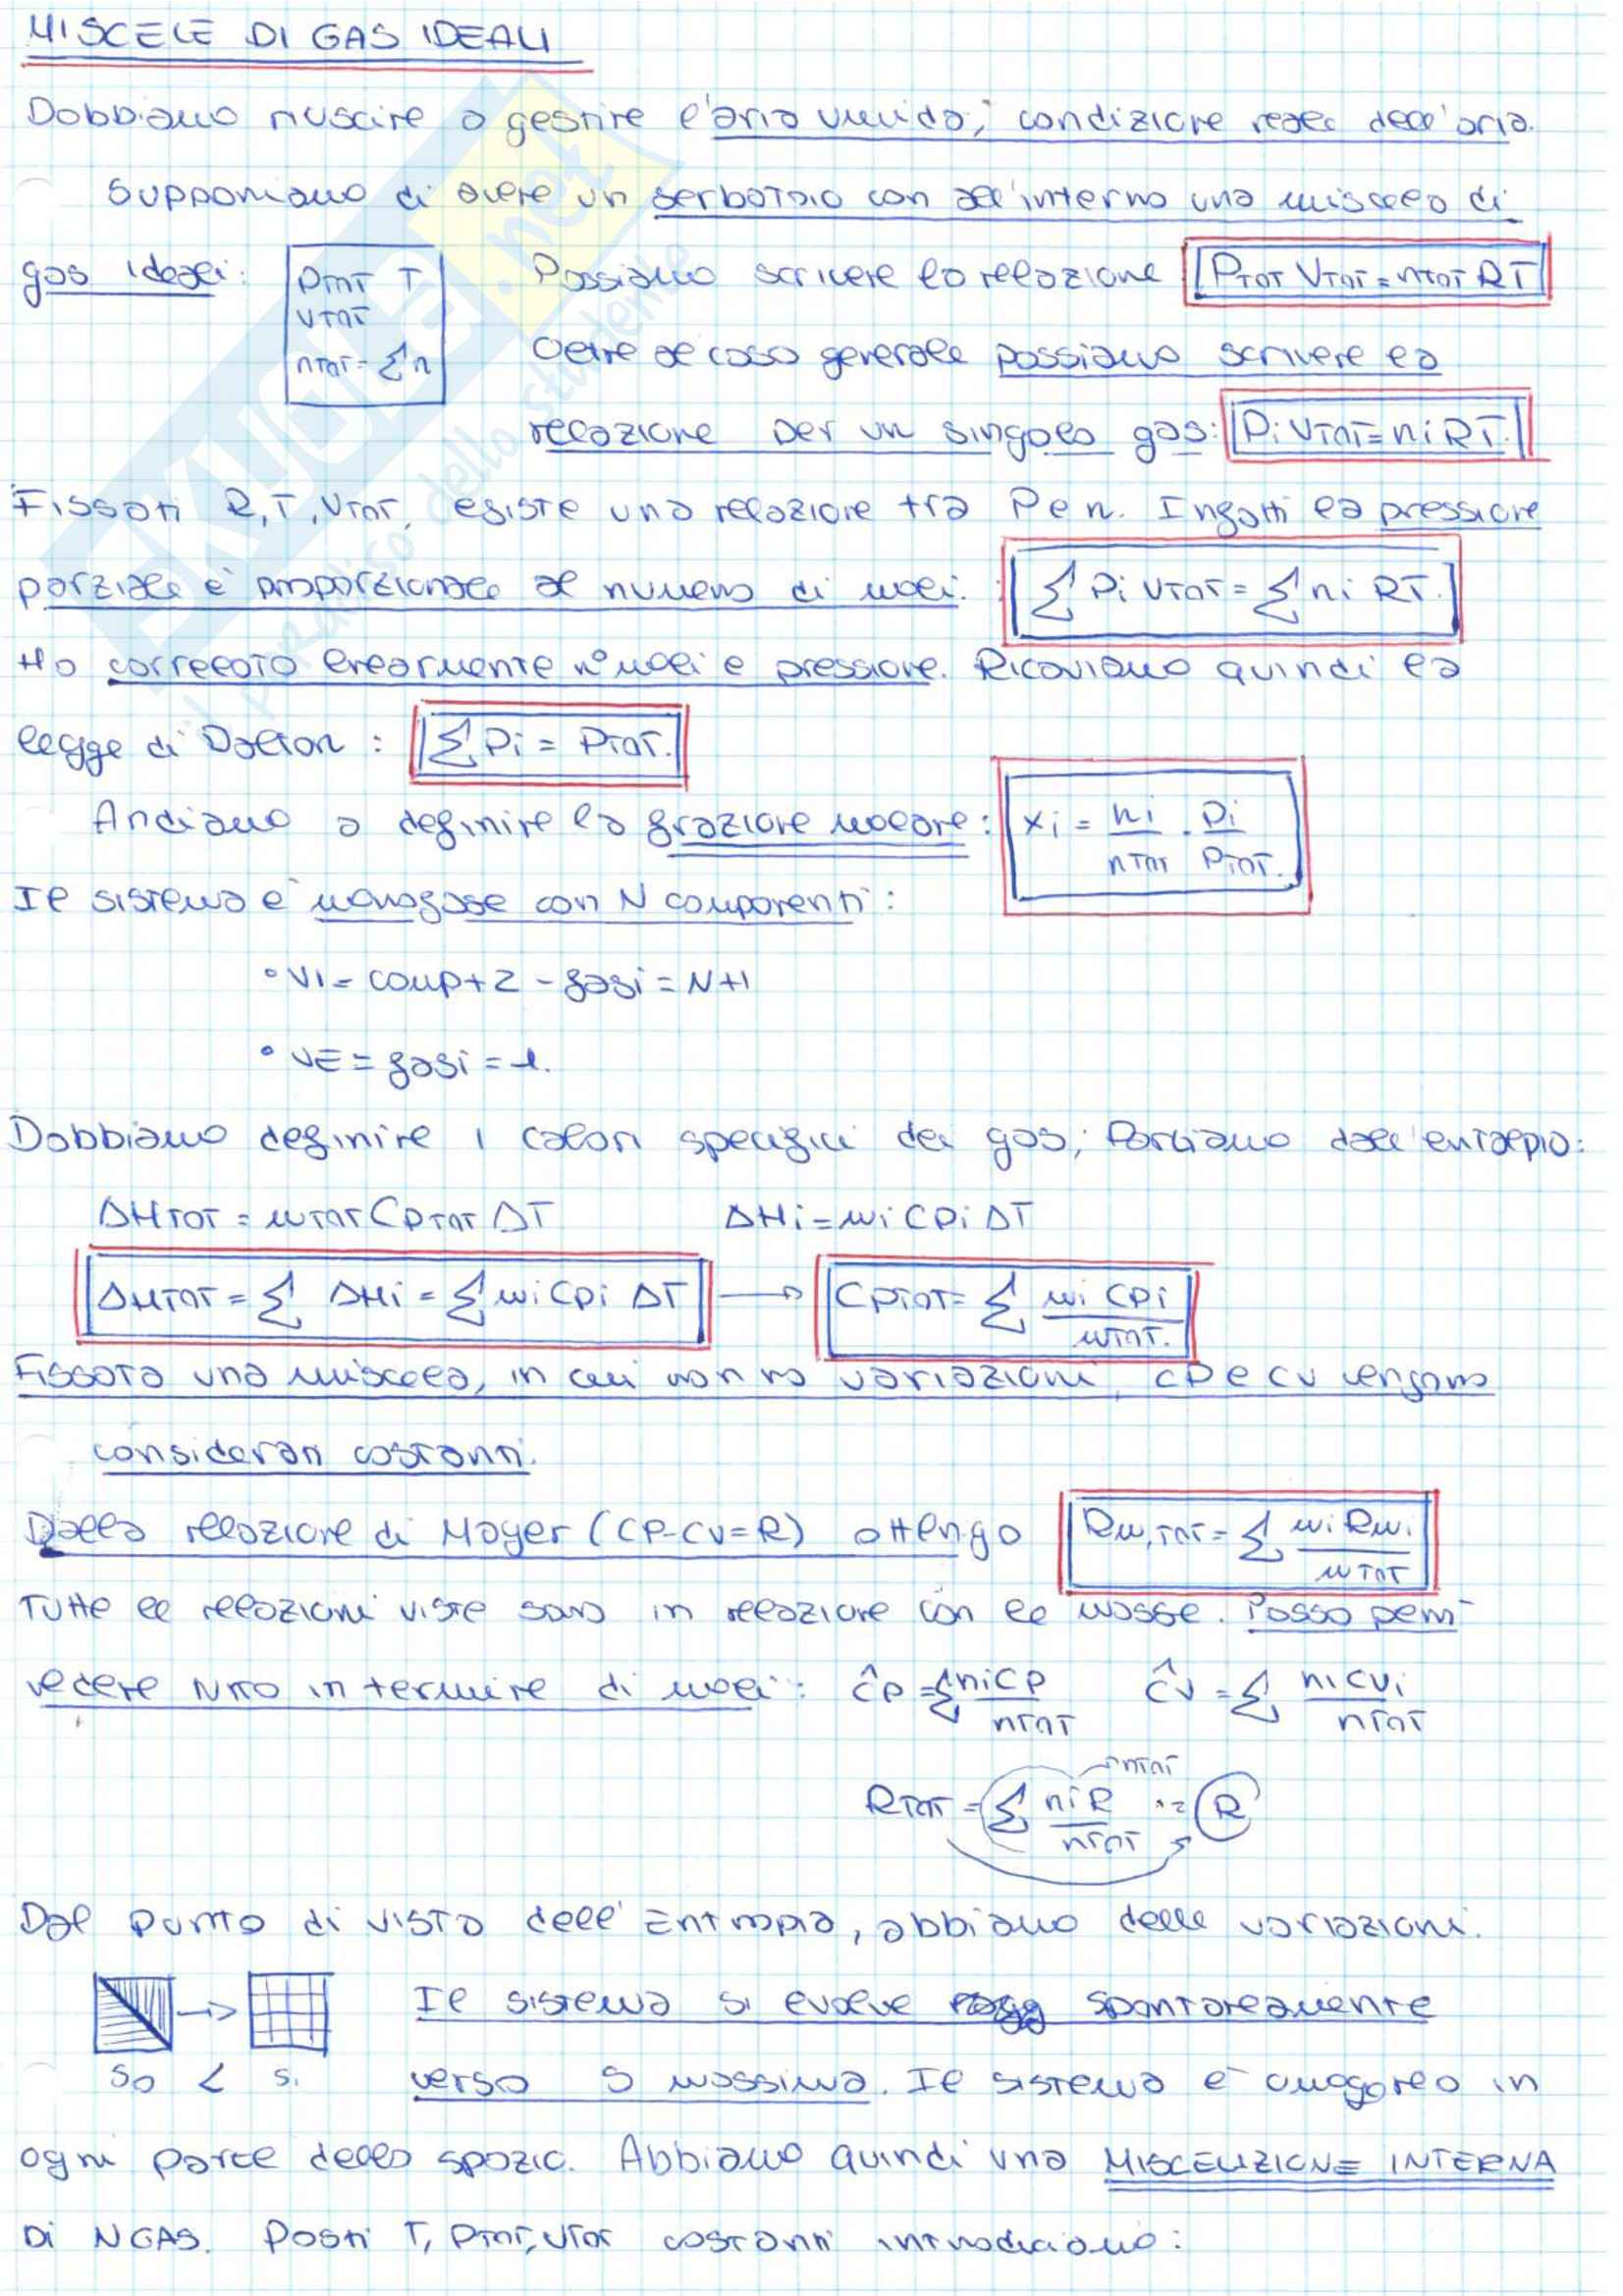 MISCELE DI GAS IDEALI
Dobbiamo riuscire a gestire l'aria umida, condizione reale dell'aria.
Supponiamo di avere un serbatoio con all'interno una miscela di
gas ideali: PTOT T Possiamo scrivere la relazione PTOT VTOT = nTOT RT
VTOT
nTOT = Σn Oltre al caso generale possiamo scrivere la
relazione per un singolo gas: Pi VTOT = ni RT.
Fissati R, T, VTOT, esiste una relazione tra P e n. Infatti la pressione
parziale è proporzionale al numero di moli: Σ Pi VTOT = Σ ni RT.
Ho correlato linearmente n° moli e pressione. Ricaviamo quindi la
legge di Dalton: Σ Pi = PTOT.
Andiamo a definire la frazione molare: xi = ni/nTOT . Pi/PTOT.
Il sistema è monofase con N componenti:
• VI = comp + 2 - fasi = N+1
• VE = fasi = 1.
Dobbiamo definire i calori specifici dei gas; Partiamo dall'entalpia:
ΔHTOT = mTOT CPTOT ΔT ΔHi = mi CPi ΔT
ΔHTOT = Σ ΔHi = Σ mi CPi ΔT → CPTOT = Σ mi CPi/mTOT.
Fissata una miscela, in cui non ho variazioni, cP e cv vengono
considerati costanti.
Dalla relazione di Mayer (CP-CV=R) ottengo Rm,TOT = Σ mi Rmi/mTOT
Tutte le relazioni viste sono in relazione con le masse. Posso però
vedere tutto in termine di moli: ĉP = Σ niCP/nTOT ĉv = Σ niCVi/nTOT
nTOT
RTOT = Σ niR/nTOT = R
Dal punto di vista dell'Entropia, abbiamo delle variazioni.
Il sistema si evolve spontaneamente
S0 < S1 verso S massima. Il sistema è omogeneo in
ogni parte dello spazio. Abbiamo quindi una MISCELAZIONE INTERNA
DI N GAS. Posti T, PTOT, VTOT costanti introduciamo:
SKUOLA.net
il paradiso dello studente